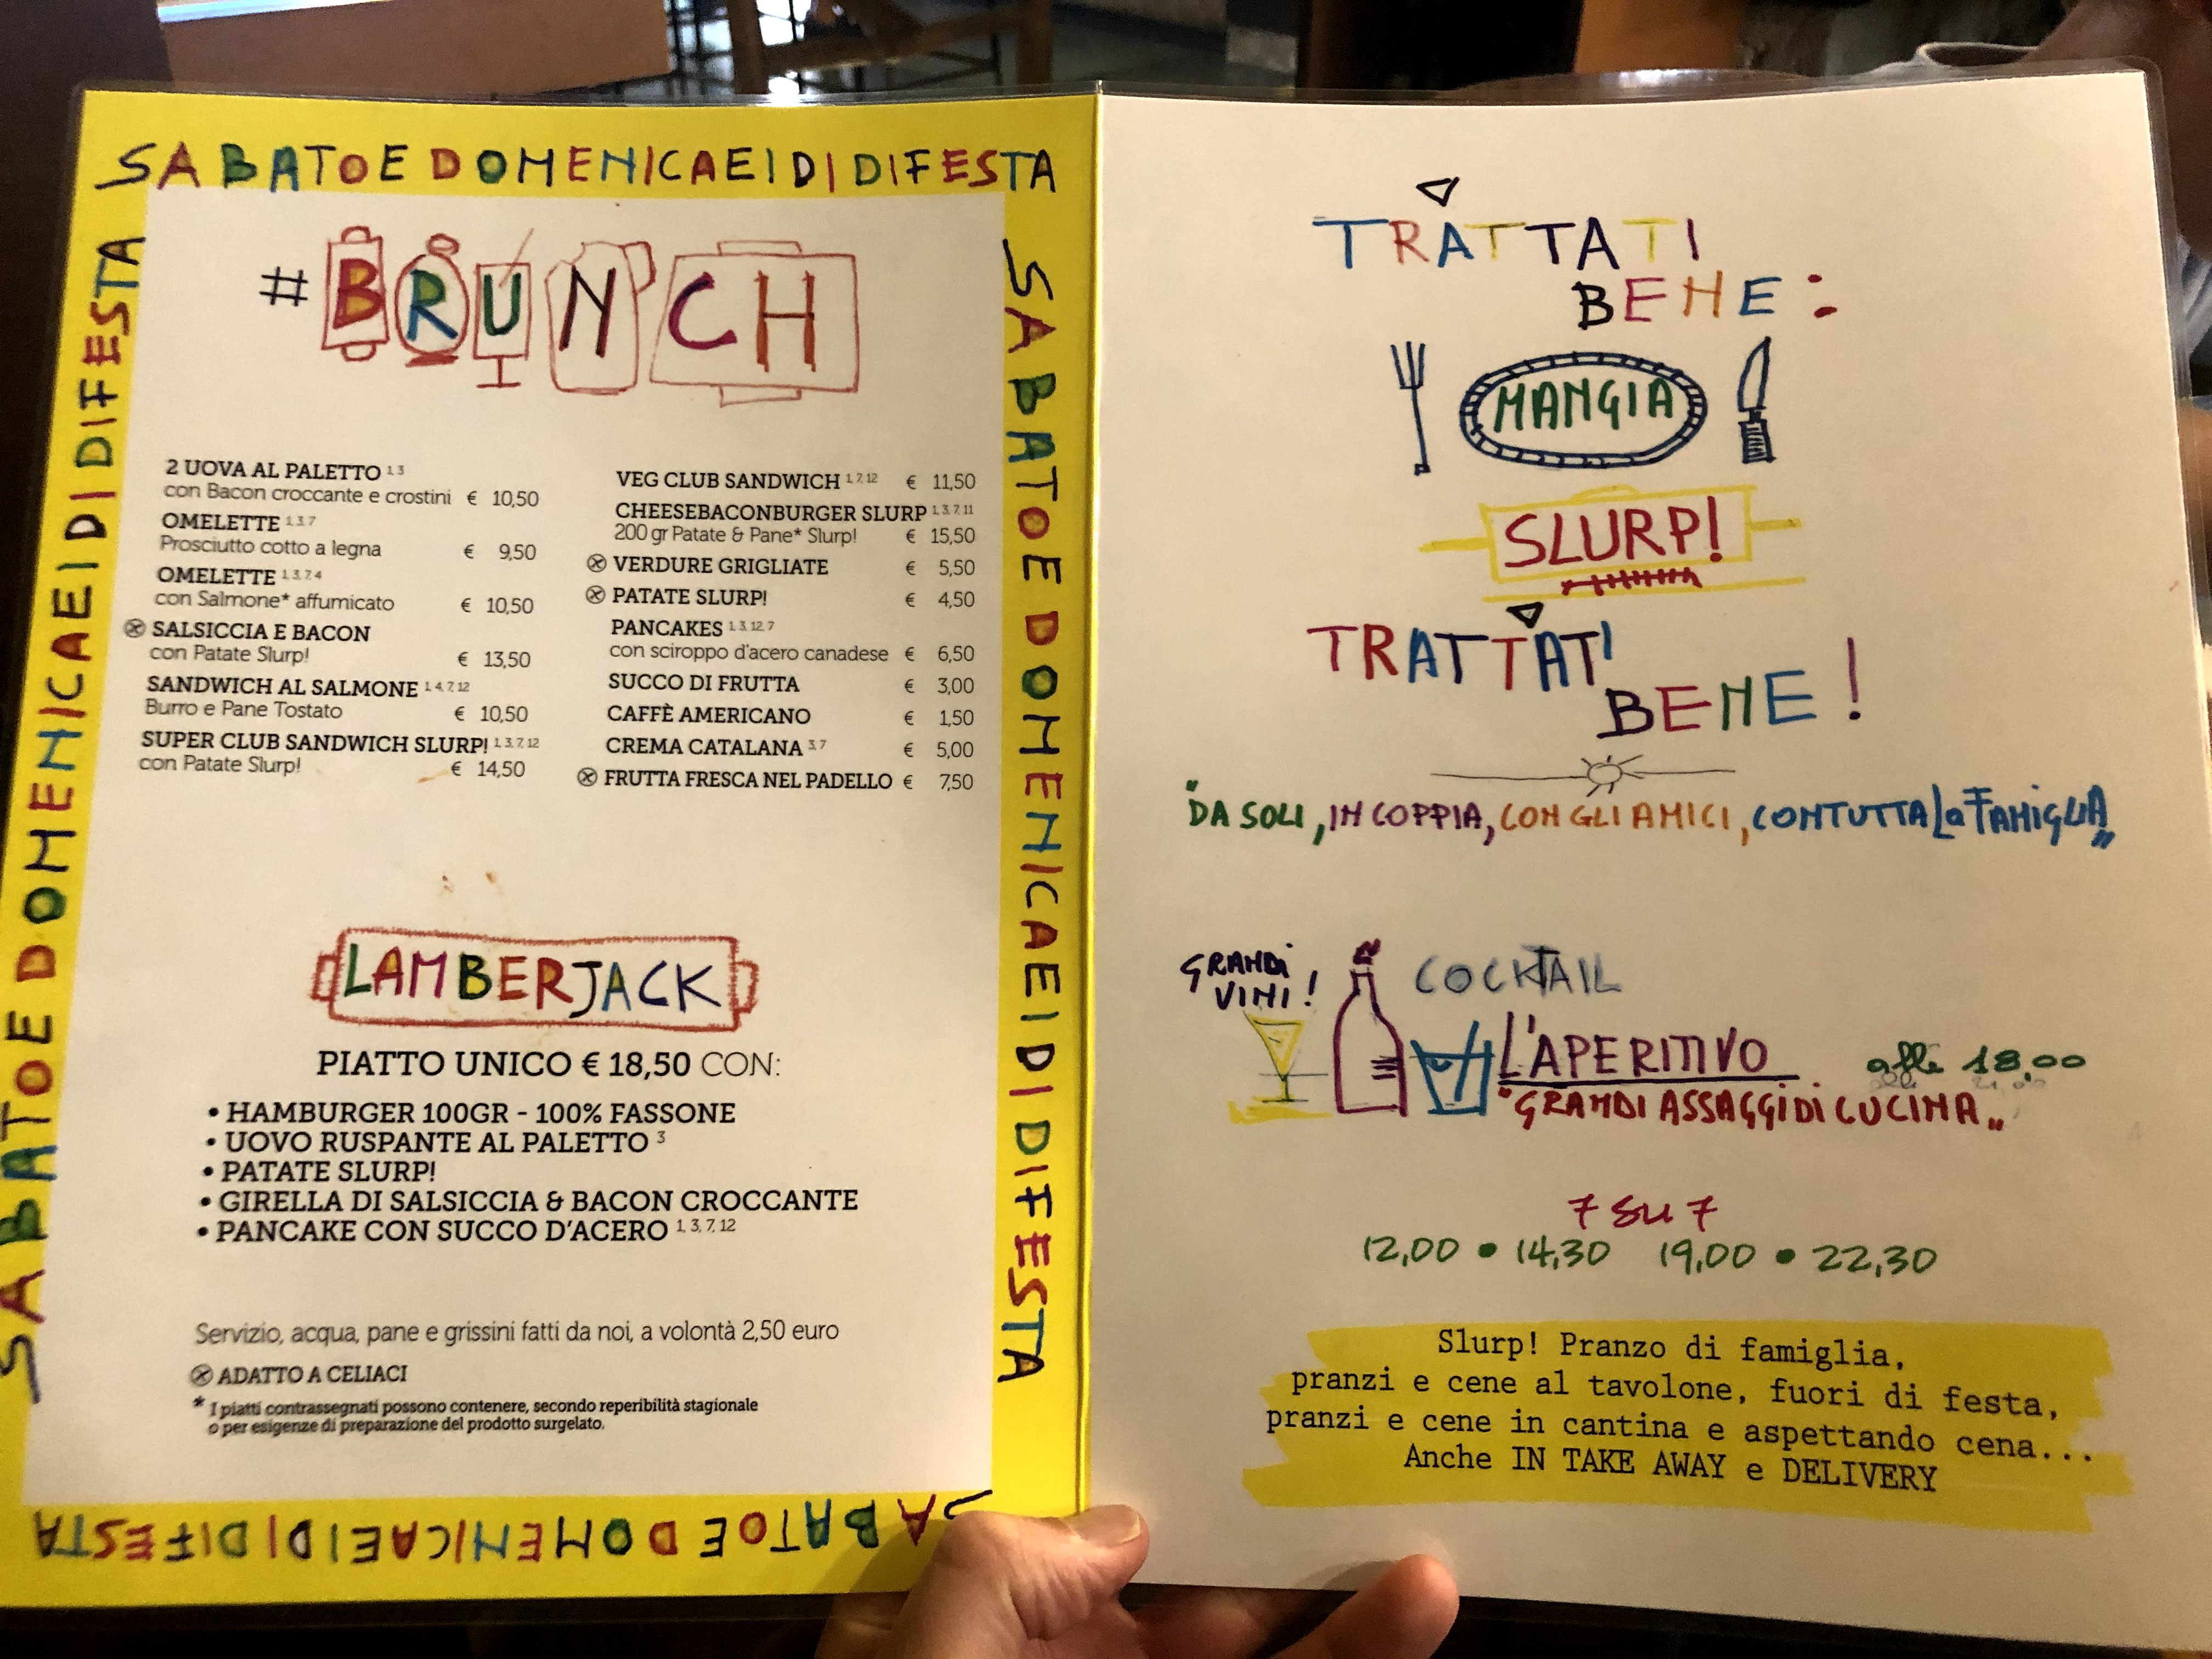 SABATO E DOMENICA E I DI DI FESTA
SABATO E DOMENICA E I DI DI FESTA
# BRUNCH
2 UOVA AL PALETTO 1, 3
con Bacon croccante e crostini € 10,50
OMELETTE 1, 3, 7
Prosciutto cotto a legna € 9,50
OMELETTE 1, 3, 7, 4
con Salmone* affumicato € 10,50
SALSICCIA E BACON
con Patate Slurp! € 13,50
SANDWICH AL SALMONE 1, 4, 7, 12
Burro e Pane Tostato € 10,50
SUPER CLUB SANDWICH SLURP! 1, 3, 7, 12
con Patate Slurp! € 14,50
VEG CLUB SANDWICH 1, 7, 12 € 11,50
CHEESEBACONBURGER SLURP 1, 3, 7, 11
200 gr Patate & Pane* Slurp! € 15,50
VERDURE GRIGLIATE € 5,50
PATATE SLURP! € 4,50
PANCAKES 1, 3, 12, 7
con sciroppo d'acero canadese € 6,50
SUCCO DI FRUTTA € 3,00
CAFFÈ AMERICANO € 1,50
CREMA CATALANA 3, 7 € 5,00
FRUTTA FRESCA NEL PADELLO € 7,50
LAMBERJACK
PIATTO UNICO € 18,50 CON:
• HAMBURGER 100GR - 100% FASSONE
• UOVO RUSPANTE AL PALETTO 3
• PATATE SLURP!
• GIRELLA DI SALSICCIA & BACON CROCCANTE
• PANCAKE CON SUCCO D'ACERO 1, 3, 7, 12
Servizio, acqua, pane e grissini fatti da noi, a volontà 2,50 euro
ADATTO A CELIACI
* I piatti contrassegnati possono contenere, secondo reperibilità stagionale
o per esigenze di preparazione del prodotto surgelato.
SABATO E DOMENICA E I DI DI FESTA
SABATO E DOMENICA E I DI DI FESTA
TRATTATI
BENE:
MANGIA
SLURP!
TRATTATI
BENE!
"DA SOLI, IN COPPIA, CON GLI AMICI, CON TUTTA La FAMiGLIA"
GRANDi
VINI!
COCKTAIL
L'APERITIVO alle 18,00
"GRANDI ASSAGGi Di CUCINA"
7 su 7
12,00 • 14,30 19,00 • 22,30
Slurp! Pranzo di famiglia,
pranzi e cene al tavolone, fuori di festa,
pranzi e cene in cantina e aspettando cena...
Anche IN TAKE AWAY e DELIVERY